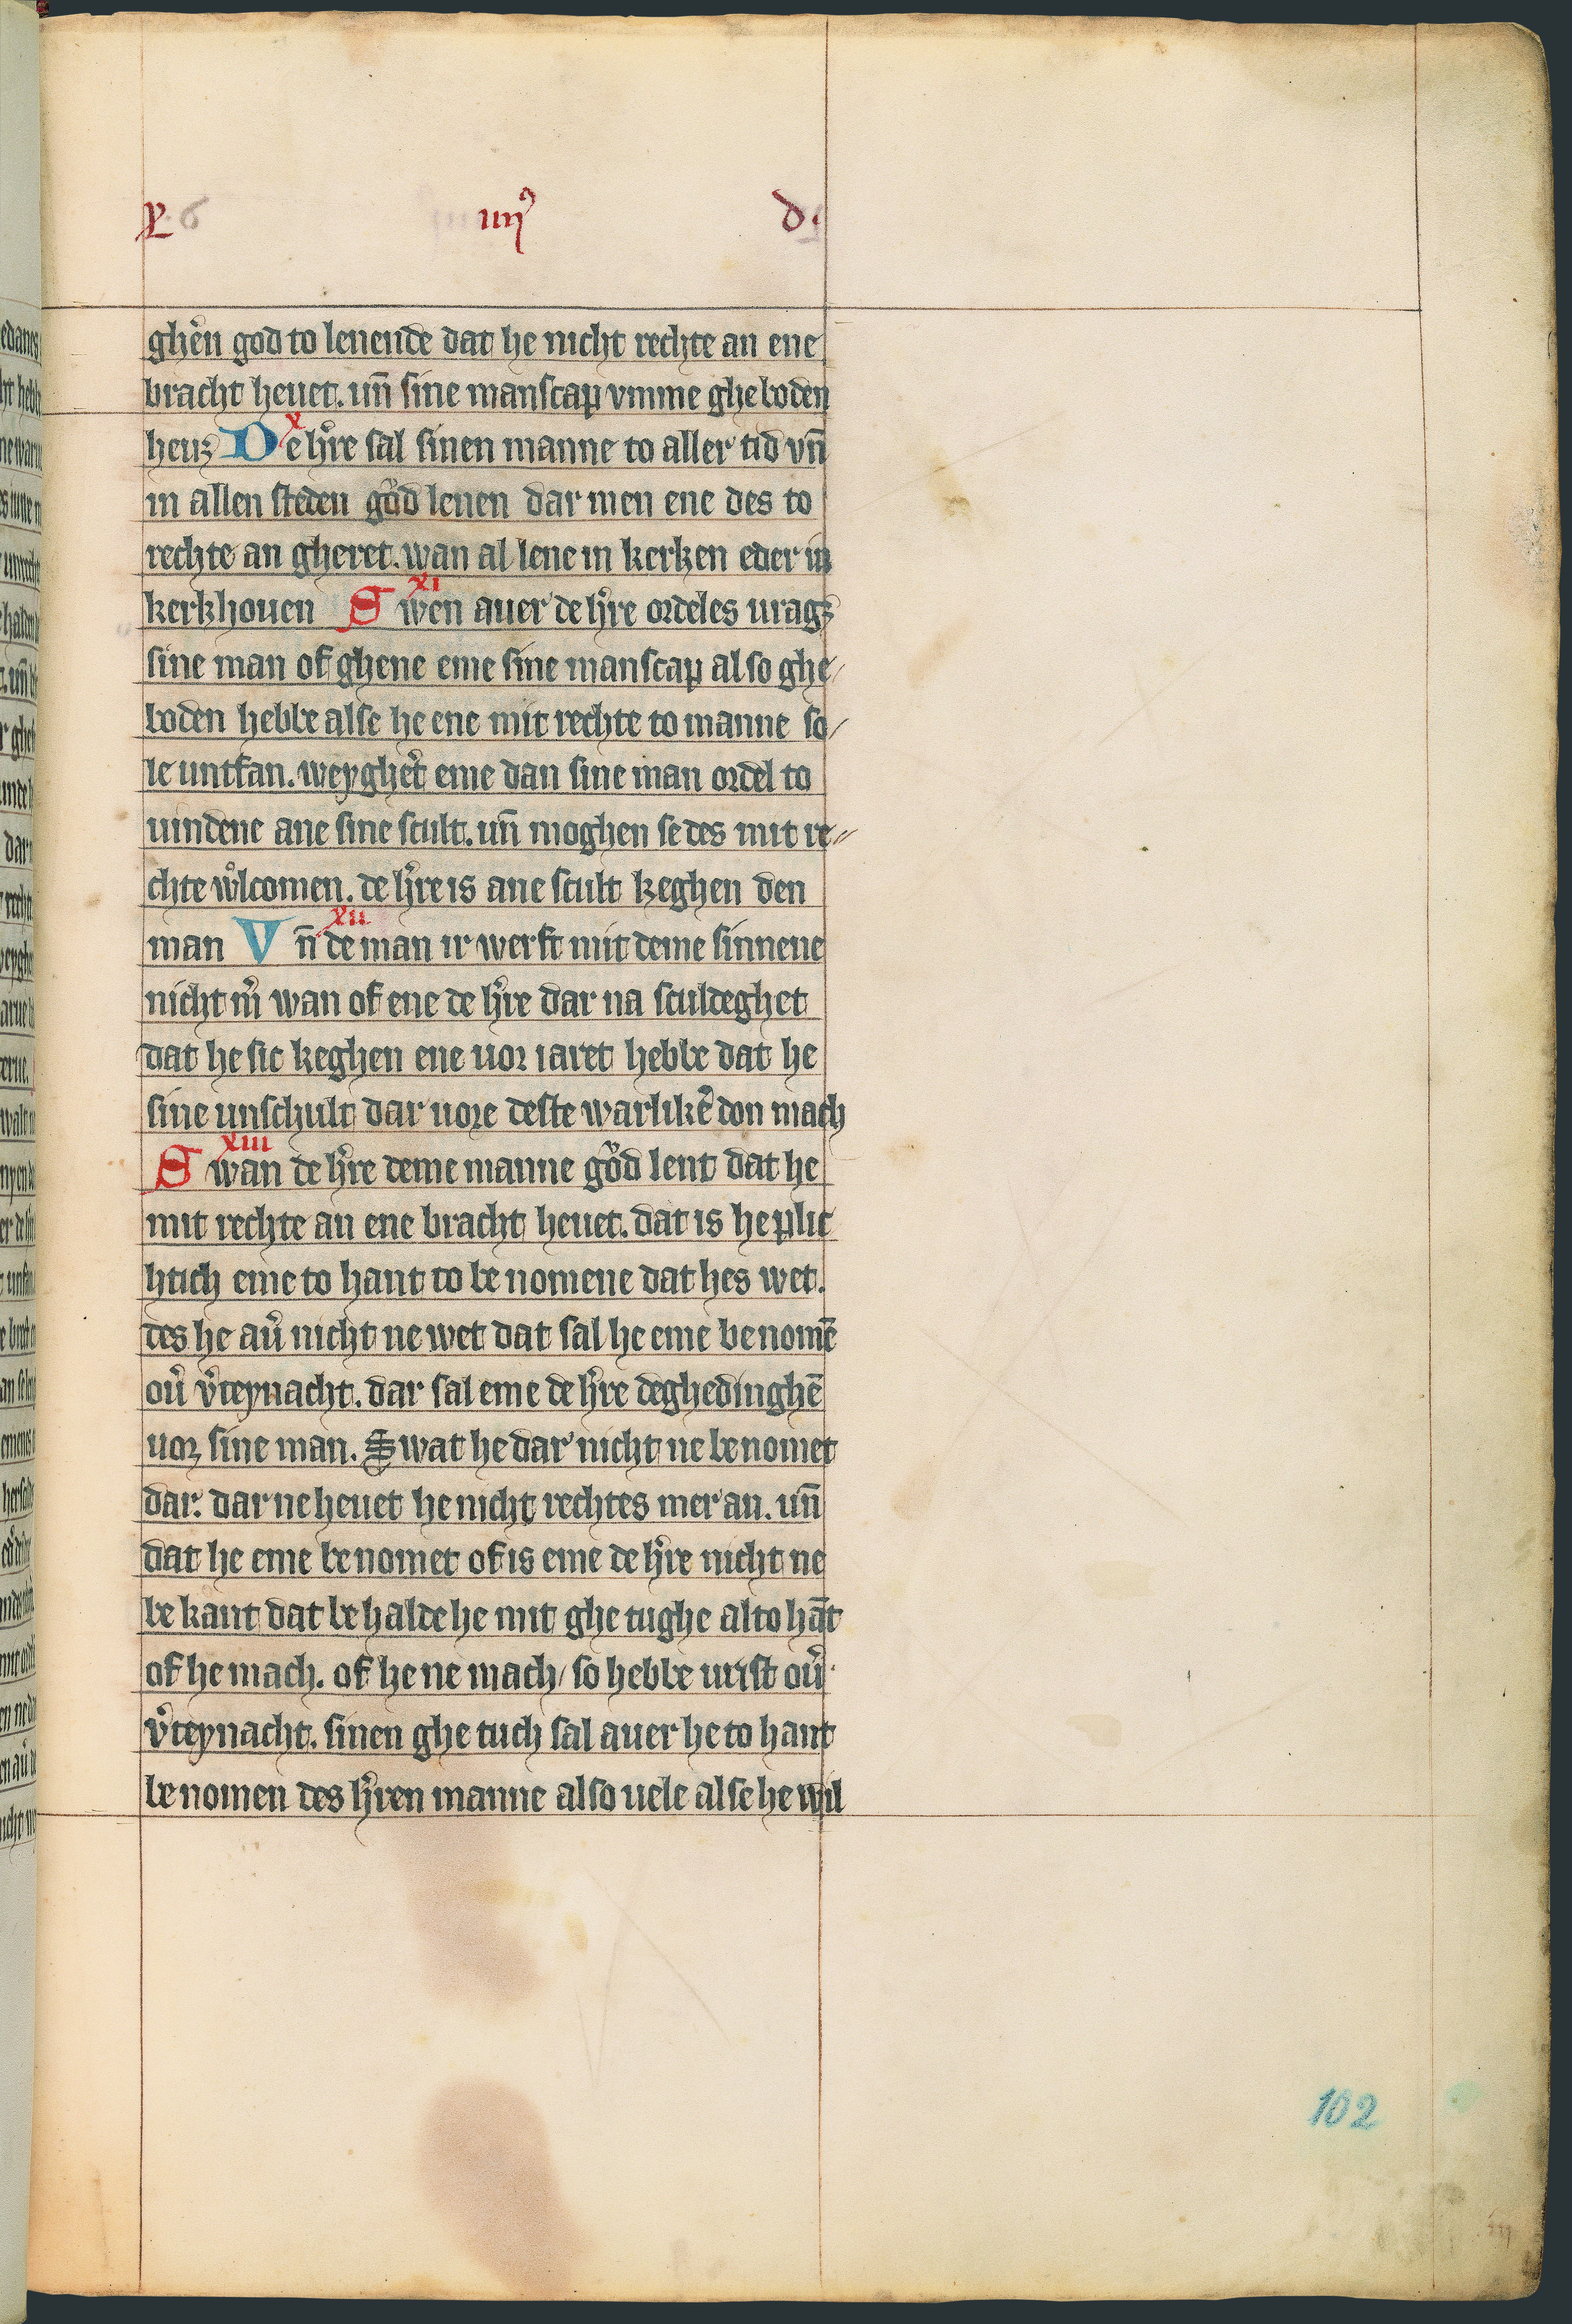 iiij⁹ d·
ghe͛n god to lenende dat he nicht rechte an ene
bracht heuet. un̄ sine manscap vmme ghe boden
heuꝫ De h͛re sal sinen manne to aller tid vn̄
x
in allen steden gůd lenen dar men ene des to
rechte an gheret. wan al lene in kerken eder in
kerkhouen Swen auer de h͛re ordeles uragꝫ
xi
sine man of ghene eme sine manscap also ghe/
boden hebbe alse he ene mit rechte to manne so/
le untfan. weyghe͛t eme dan sine man ordel to
uindene ane sine scult. un̄ moghen se des mit re//
chte wͦlcomen. de h͛re is ane scult keghen den
man Vn̄ de man ir werft mit deme sinnene
xii
nicht m͛ wan of ene de h͛re dar na sculdeghet
dat he sic keghen ene uor iaret hebbe dat he
sine unschult dar uore deste warlike͛ don mach
Swan de h͛re deme manne gůd lent dat he
xiii
mit rechte an ene bracht heuet. dat is he plic
htich eme to hant to be nomene dat hes wet.
des he au͛ nicht ne wet dat sal he eme benomē
ou͛ v͛teynacht. dar sal eme de h͛re deghedinghē
uor sine man. Swat he dar nicht ne benomet
dar. dar ne heuet he nicht rechtes mer an. un̄
dat he eme benomet of is eme de h͛re nicht ne
be kant dat be halde he mit ghe tughe alto hāt
of he mach. of he ne mach/ so hebbe urist ou͛
v͛teynacht. sinen ghe tuch sal auer he to hant
be nomen des h͛ren manne also uele alse he wil
102